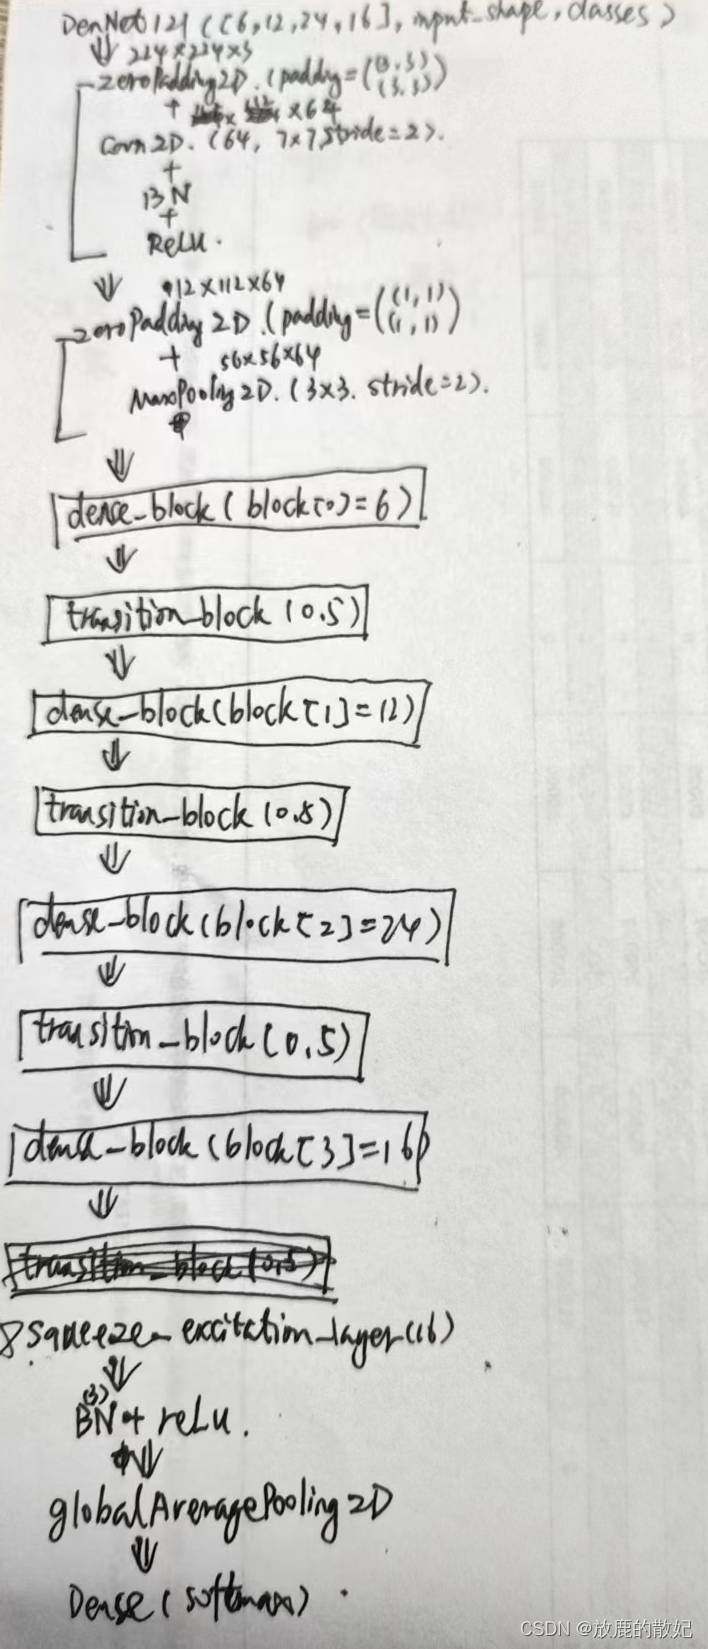 DenNet121 ([6,12,24,16], input_shape, classes)
224×224×3
zeroPadding2D. (padding=((3,3)
(3,3))
+ ×64
Conv2D. (64, 7×7, stride=2).
+
BN
+
ReLU.
112×112×64
zeroPadding2D. (padding=((1,1)
(1,1))
+ 56×56×64
MaxPooling2D. (3×3. stride=2).
dense_block (block[0]=6)
transition_block (0.5)
dense_block(block[1]=12)
transition_block (0.5)
dense_block(block[2]=24)
transition_block(0.5)
dense_block(block[3]=16)
transition_block(0.5)
squeeze_excitation_layer(16)
(3)
BN + reLu.
globalAveragePooling2D
Dense (softmax).
CSDN @放鹿的散妃